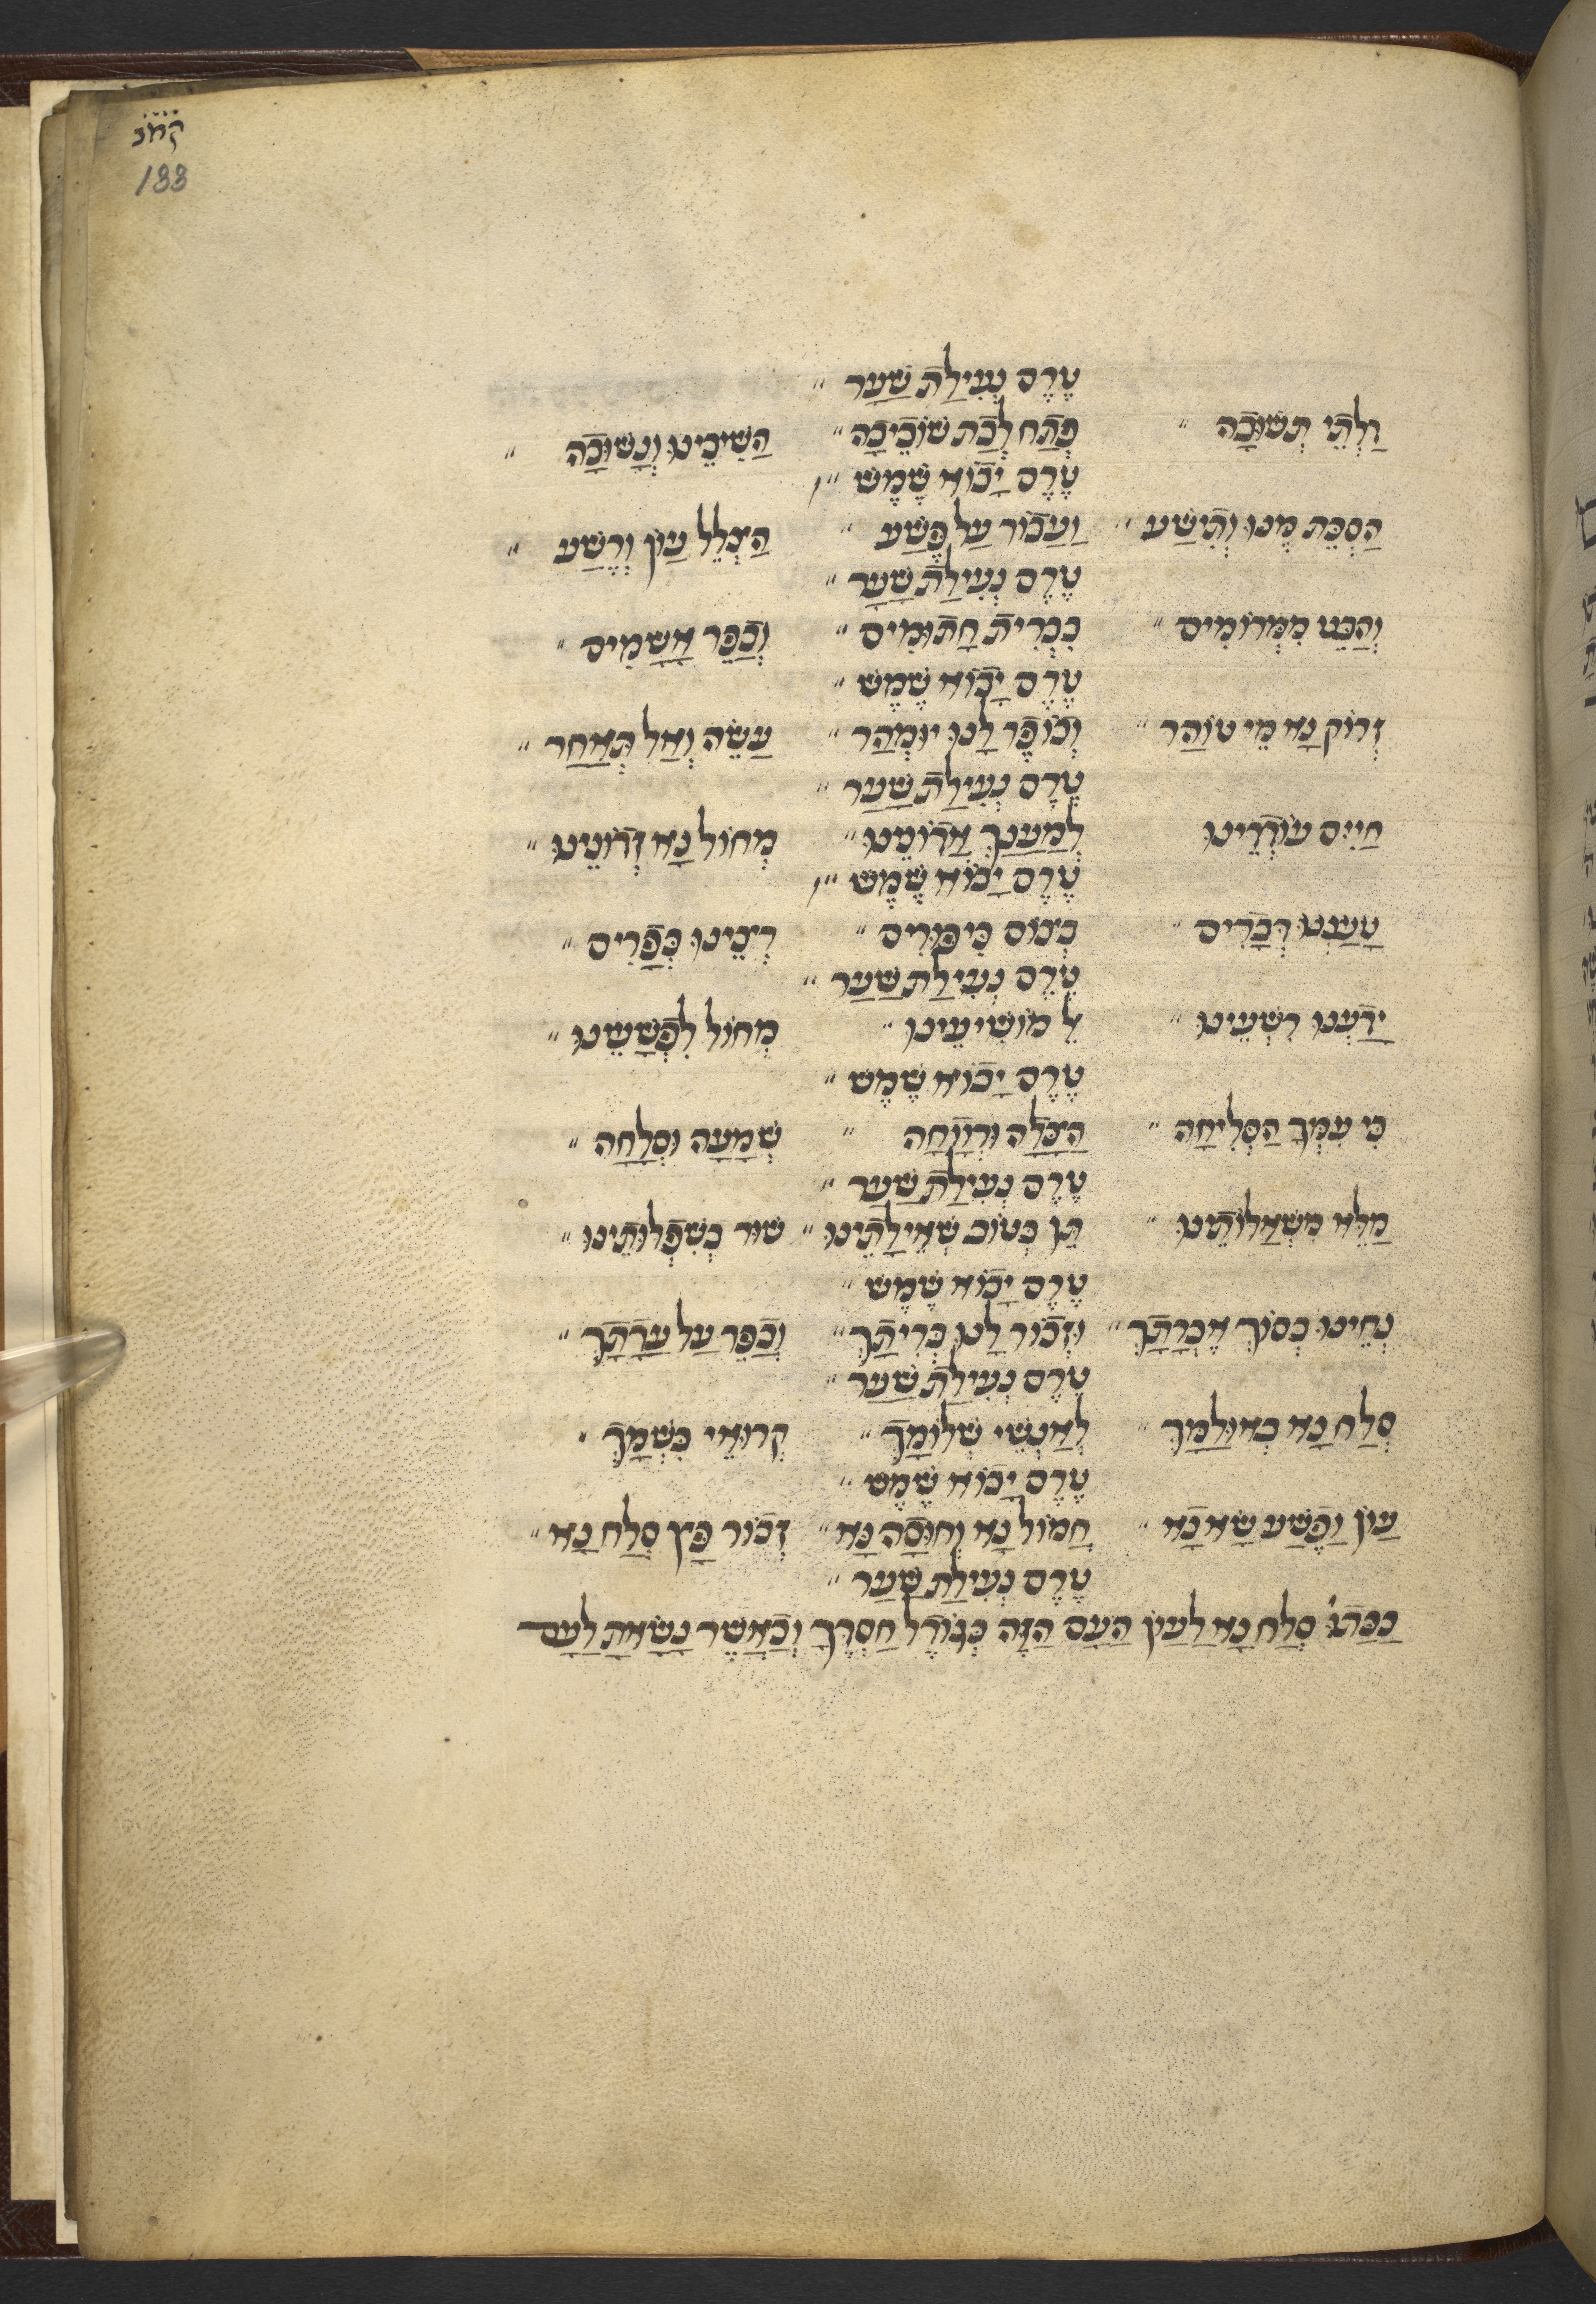 קחב
133
טֶרֶם נְעִילַת שַׁעַר
וְלָתֵי תְשׁוּבָה פְּתַח לְבַת שׁוֹבֵיבָה הֲשִׁיבֵינוּ וְנָשׁוּבָה
טֶרֶם יָבוֹא שֶׁמֶשׁ
הַסְכֵּת מֶנוּ וְתִישַׁע וַעֲבוֹר עַל פֶּשַׁע הַצְלֵל עָוֹן וָרֶשַׁע
טֶרֶם נְעִילַת שַׁעַר
וְהַבֵּט מִמְּרוֹמִים בִּבְרִית חֲתוּמִים וְכַפֵּר אֲשָׁמִים
טֶרֶם יָבוֹא שֶׁמֶשׁ
זְרוֹק נָא מֵי טוֹהַר וְכוֹפֶר לָנוּ יוּמְהַר עֲשֵׂה וְאַל תְּאַחַר
טֶרֶם נְעִילַת שַׁעַר
חַיִּים עוֹדְדֵינוּ לְמַעַנְךָ אֲדוֹנֵינוּ מְחוֹל נָא זְדוֹנֵינוּ
טֶרֶם יָבוֹא שֶׁמֶשׁ
טָעַנְנוּ דְּבָרִים בְּצוֹם כִּיפּוּרִים רְצֵינוּ כְּפָרִים
טֶרֶם נְעִילַת שַׁעַר
יָדַעְנוּ רִשְׁעֵינוּ אֵל מוֹשִׁיעֵינוּ מְחוֹל לִפְשָׁעֵינוּ
טֶרֶם יָבוֹא שֶׁמֶשׁ
כִּי עִמְּךָ הַסְּלִיחָה הַצָּלָה וּרְוָחָה שְׁמָעָה וּסְלָחָה
טֶרֶם נְעִילַת שַׁעַר
מַלֵּא מִשְׁאֲלוֹתֵינוּ תֵּן כְּטוֹב שְׁאֵילָתֵינוּ שׁוּר בְּשִׁפְלוּתֵינוּ
טֶרֶם יָבוֹא שֶׁמֶשׁ
נְחֵינוּ בְּסוֹךְ אֶבְרָתָךְ וּזְכוֹר לָנוּ בְּרִיתָךְ וְכַפֵּר עַל עֲדָתָךְ
טֶרֶם נְעִילַת שַׁעַר
סְלַח נָא בְּאוּלָמָךְ לְאַנְשֵׁי שְׁלוֹמָךְ קְרוּאֵי בִּשְׁמָךְ
טֶרֶם יָבוֹא שֶׁמֶשׁ
עָוֹן וָפֶשַׁע שָׂא נָא חֲמוֹל נָא וְחוּסָה נָּא זְכוֹר פָּץ סְלַח נָא
טֶרֶם נְעִילַת שַׁעַר
כַּכָּתוּ׳ סְלַח נָא לַעֲוֹן הָעָם הַזֶּה כְּגוֹדֶל חַסְדֶּךָ וְכַאֲשֶׁר נָשָׂאתָ לָעָם